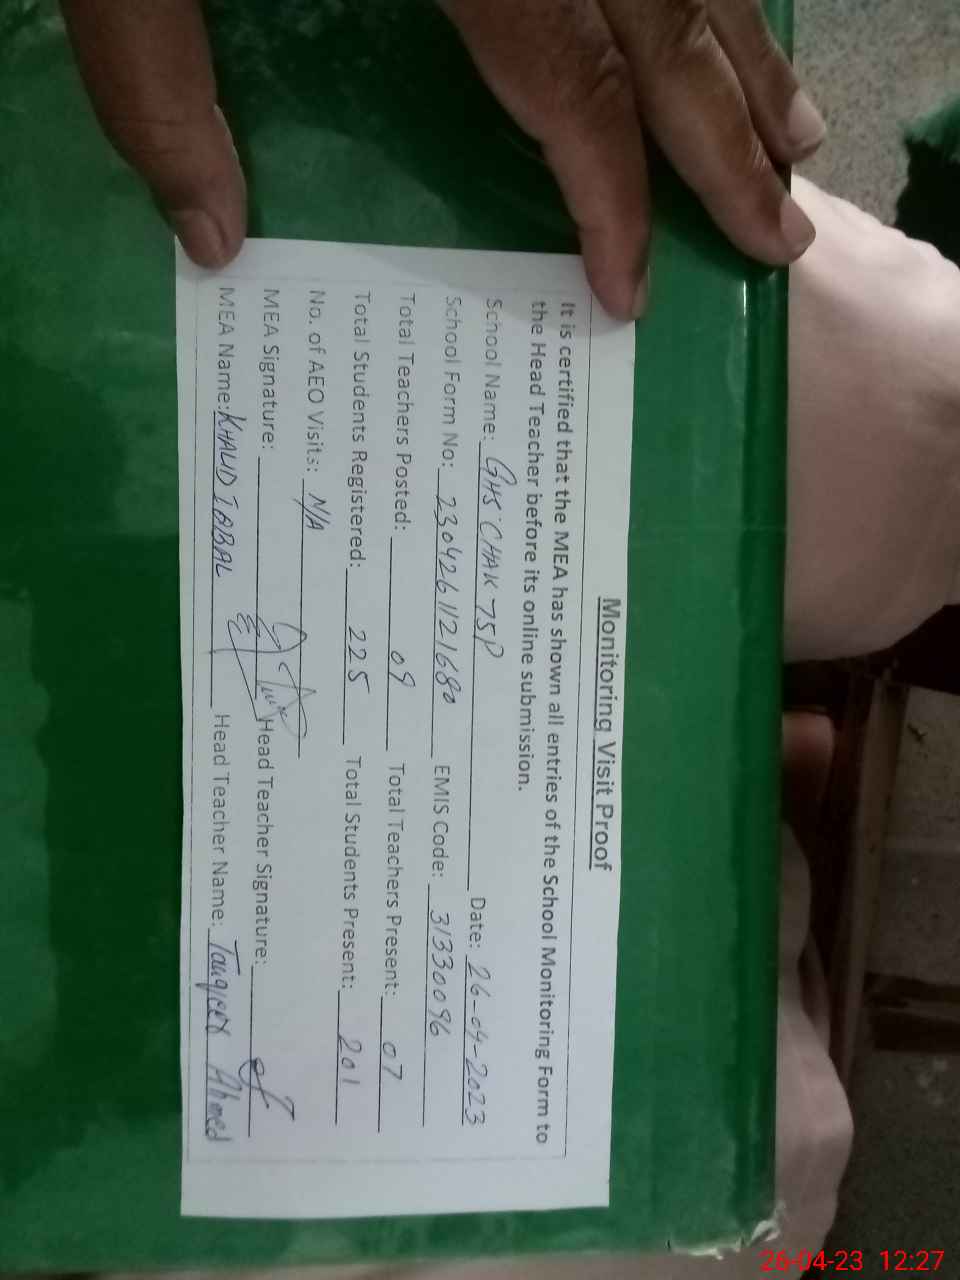 Monitoring Visit Proof
It is certified that the MEA has shown all entries of the School Monitoring Form to
the Head Teacher before its online submission.
School Name: GHS CHAK 75P Date: 26-04-2023
School Form No: 2304261121680 EMIS Code: 31330096
Total Teachers Posted: 09 Total Teachers Present: 07
Total Students Registered: 225 Total Students Present: 201
No. of AEO Visits: N/A
MEA Signature: Head Teacher Signature:
MEA Name: KHALID IQBAL Head Teacher Name: Tauqeer Ahmed
26-04-23 12:27